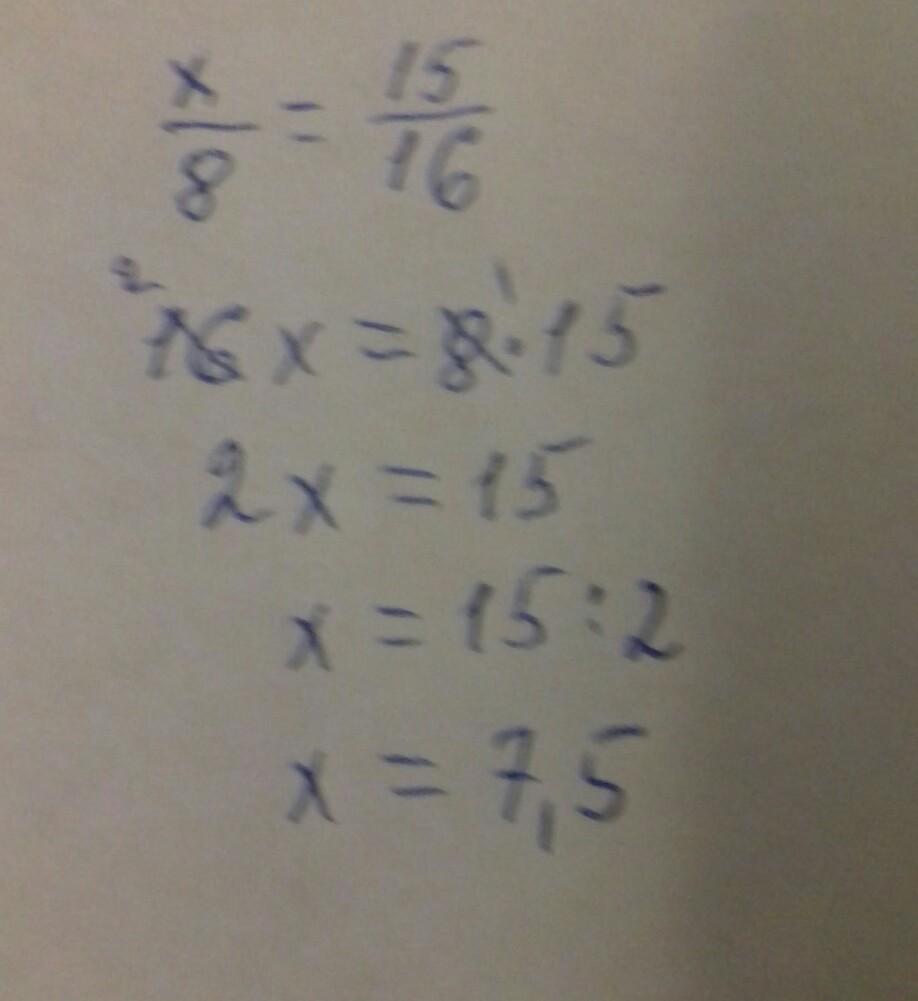 x/8 = 15/16
² 16 x = 8¹ · 15
2x = 15
x = 15 : 2
x = 7,5